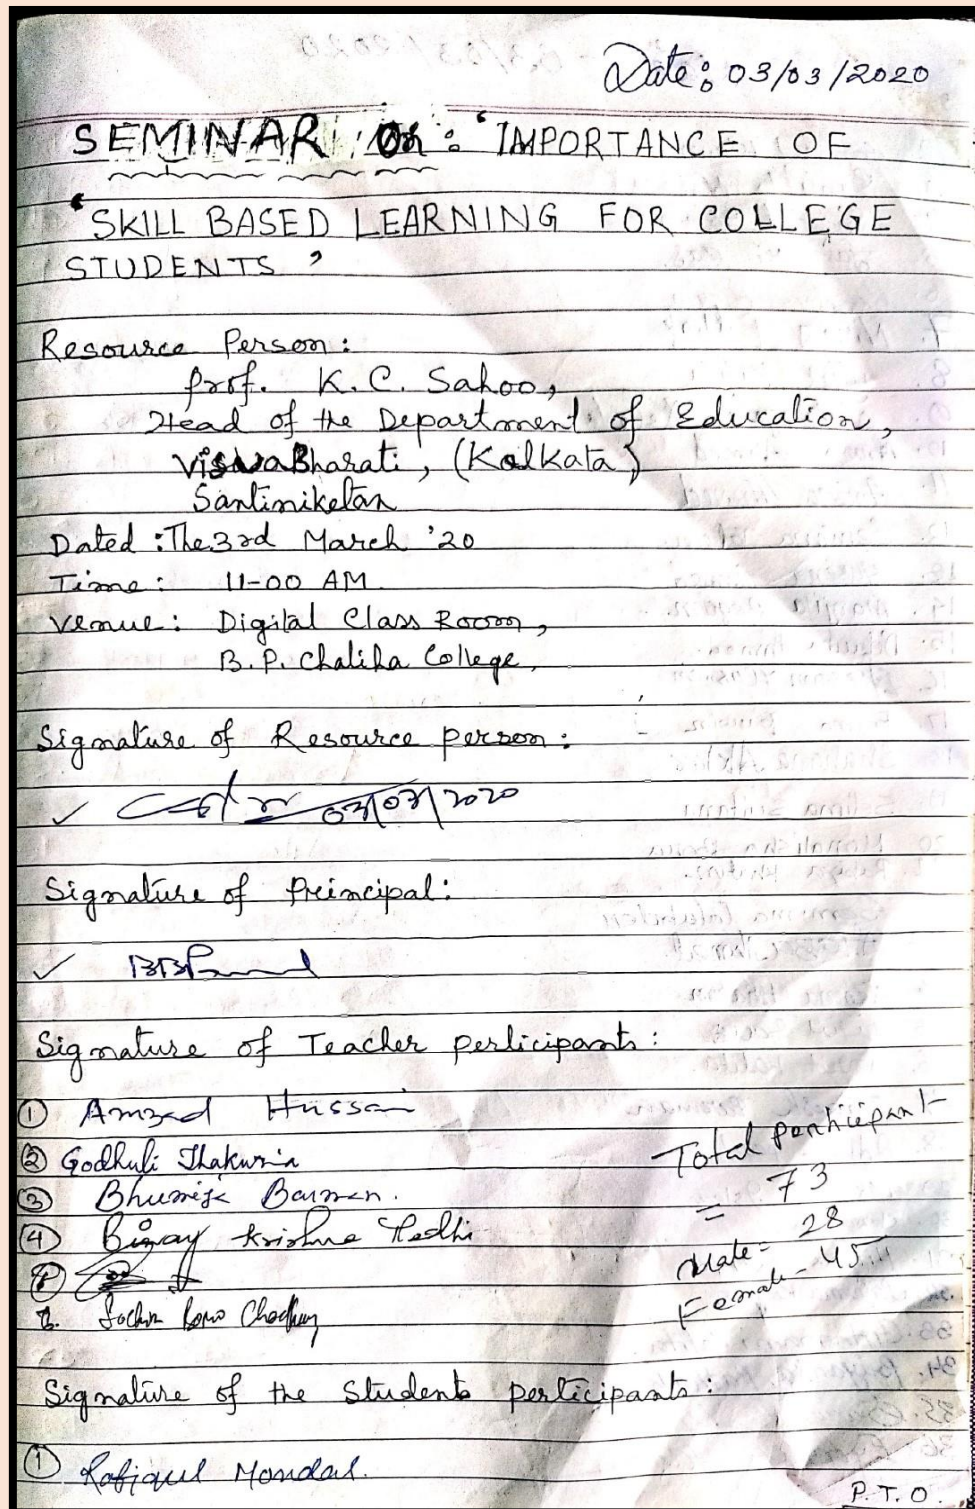 Date: 03/03/2020
SEMINAR On : 'IMPORTANCE OF
'SKILL BASED LEARNING FOR COLLEGE
STUDENTS'
Resource Person:
Prof. K.C. Sahoo,
Head of the Department of Education,
VisvaBharati, (Kolkata)
Santiniketan
Dated : The 3rd March '20
Time : 11-00 AM
Venue : Digital Class Room,
B.P. Chaliha College.
Signature of Resource person :
03/03/2020
Signature of Principal :
Signature of Teacher perticipants :
① Amzad Hussain
② Godhuli Thakuria
③ Bhumija Barman.
④ Binay Krishna
6.
Total participant
= 73
Male - 28
Female - 45
Signature of the Students perticipants :
① Rafiqul Mondal.
P.T.O.